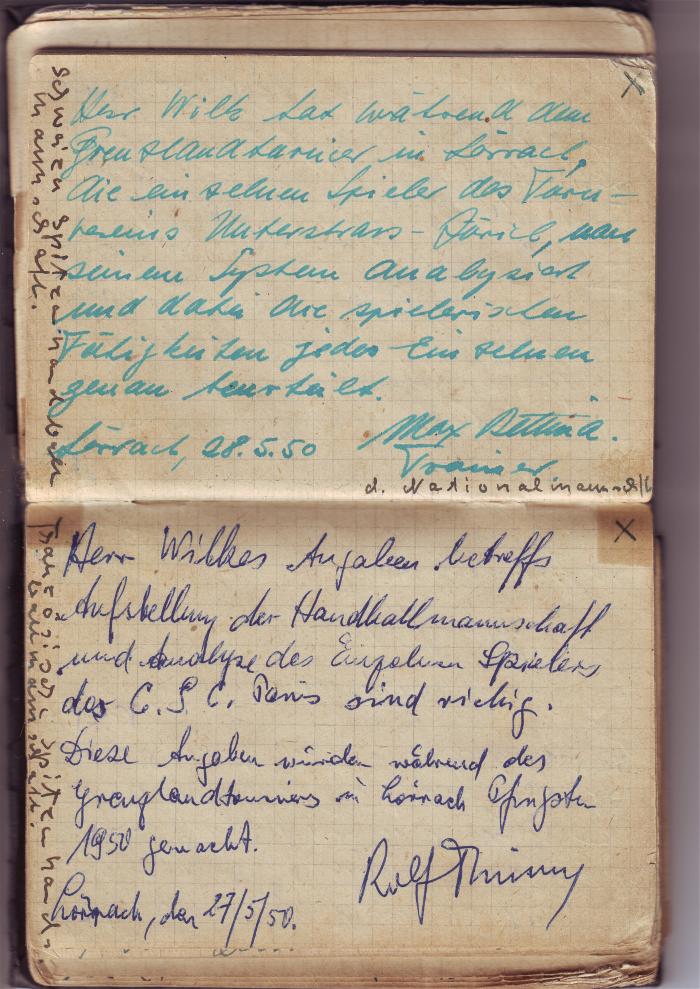 Herr Wilk hat während dem
Grenzlandturnier in Lörrach,
die einzelnen Spieler des Turn-
vereins Unterstrass-Zürich, nach
seinem System analysiert
und dabei die spielerischen
Fähigkeiten jedes Einzelnen
genau beurteilt.
Lörrach, 28.5.50 Max
Trainer
d. Nationalmannsch
Schweizer Spitzenhandball
mannschaft.
Herr Wilkes Angaben betreffs
Aufstellung der Handballmannschaft
und Analyse des Einzelnen Spielers
des C. S. C. Paris sind richig.
Diese Angaben würden während des
Grenzlandtourniers in Lörrach Pfingsten
1950 gemacht.
Rolf
Lörrach, den 27/5/50.
Französische Spitzenhand-
ballmannschaft.